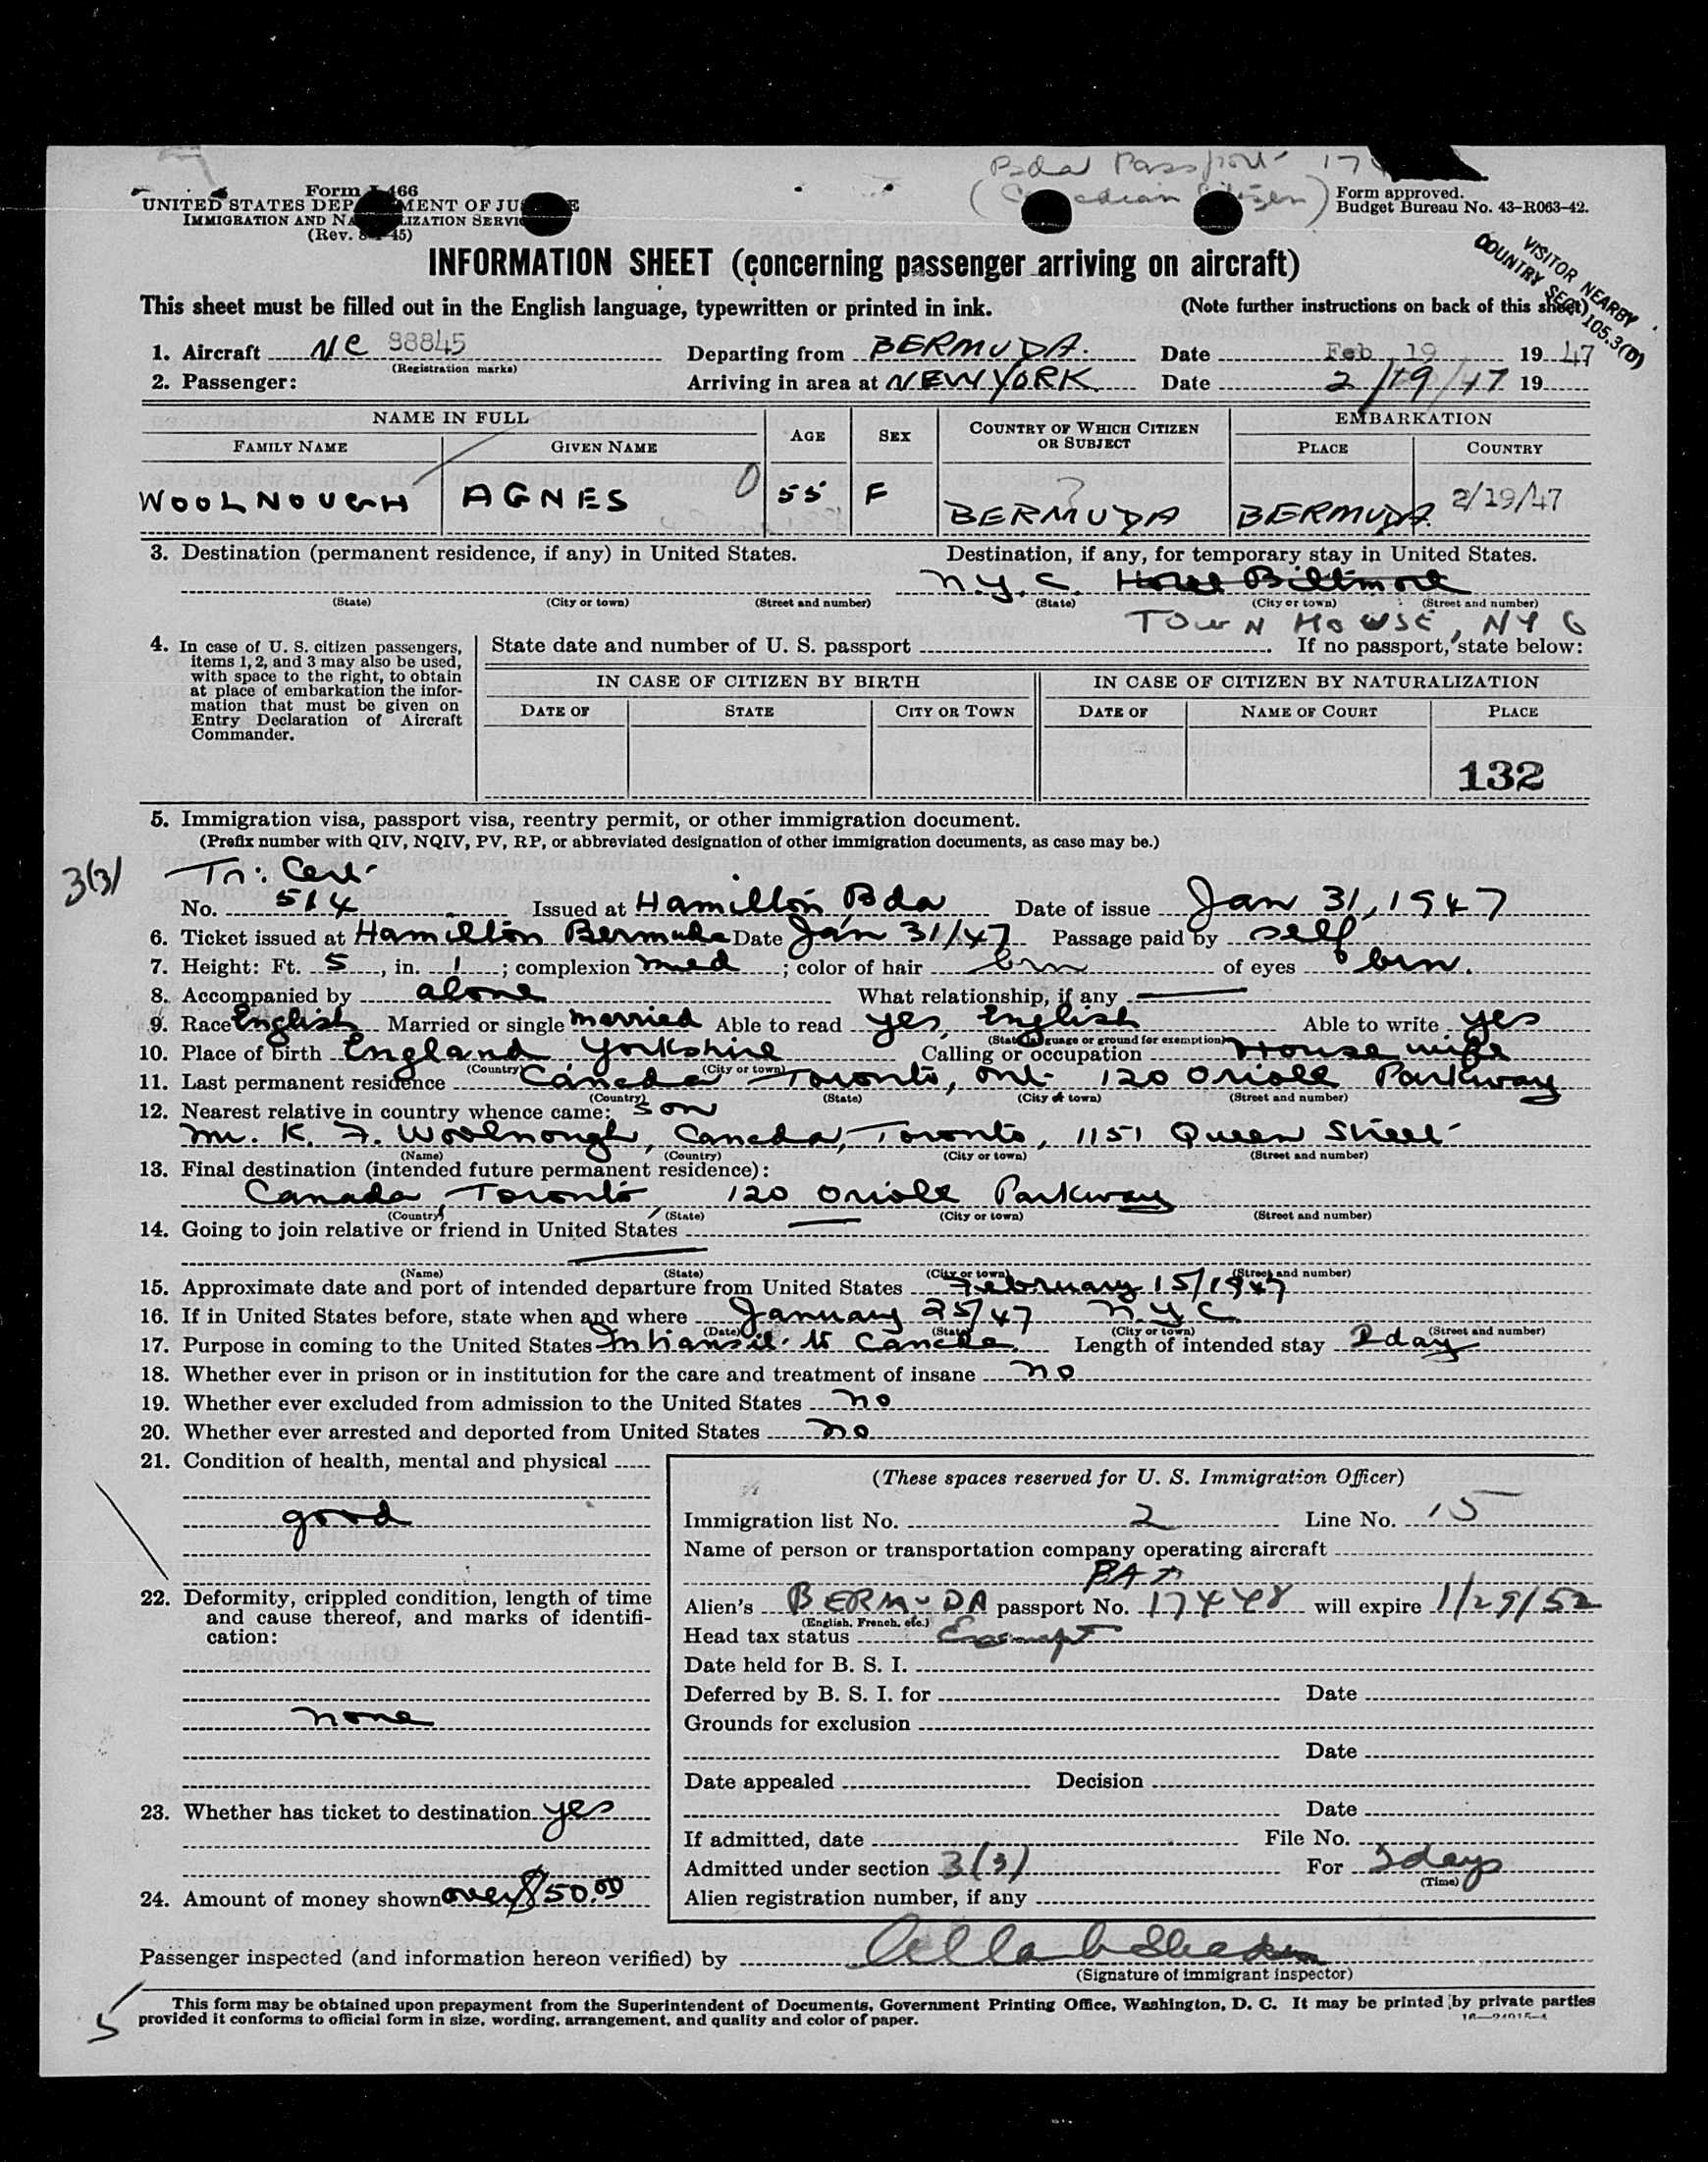 Bda Passport 17
(Canadian Citizen)
Form I-466
UNITED STATES DEPARTMENT OF JUSTICE
IMMIGRATION AND NATURALIZATION SERVICE
(Rev. 45)
Form approved.
Budget Bureau No. 43-R063-42.
VISITOR NEARBY
COUNTRY SEC. 105.3(D)
INFORMATION SHEET (concerning passenger arriving on aircraft)
This sheet must be filled out in the English language, typewritten or printed in ink. (Note further instructions on back of this sheet)
1. Aircraft NC 88845 Departing from BERMUDA. Date Feb 19 19 47
(Registration marks)
2. Passenger: Arriving in area at NEW YORK Date 2/19/47 19
NAME IN FULL AGE SEX COUNTRY OF WHICH CITIZEN OR SUBJECT EMBARKATION
FAMILY NAME GIVEN NAME PLACE COUNTRY
WOOLNOUGH AGNES 0 55 F ? BERMUDA BERMUDA 2/19/47
3. Destination (permanent residence, if any) in United States. Destination, if any, for temporary stay in United States.
N.Y.C. Hotel Biltmore
(State) (City or town) (Street and number) (State) (City or town) (Street and number)
TOWN HOUSE, NYC
4. In case of U. S. citizen passengers, items 1, 2, and 3 may also be used, with space to the right, to obtain at place of embarkation the information that must be given on Entry Declaration of Aircraft Commander.
State date and number of U. S. passport . If no passport, state below:
IN CASE OF CITIZEN BY BIRTH IN CASE OF CITIZEN BY NATURALIZATION
DATE OF STATE CITY OR TOWN DATE OF NAME OF COURT PLACE
132
5. Immigration visa, passport visa, reentry permit, or other immigration document.
(Prefix number with QIV, NQIV, PV, RP, or abbreviated designation of other immigration documents, as case may be.)
3(3) Tr: Cert
No. 514 Issued at Hamilton, Bda Date of issue Jan 31, 1947
6. Ticket issued at Hamilton Bermuda Date Jan 31/47 Passage paid by self
7. Height: Ft. 5, in. 1; complexion med; color of hair brn of eyes brn.
8. Accompanied by alone What relationship, if any
9. Race English Married or single married Able to read yes, English Able to write yes
(State language or ground for exemption)
10. Place of birth England, Yorkshire Calling or occupation Housewife
(Country) (City or town)
11. Last permanent residence Canada Toronto, Ont. 120 Oriole Parkway
(Country) (State) (City or town) (Street and number)
12. Nearest relative in country whence came: son
Mr. K. F. Woolnough, Canada, Toronto, 1151 Queen Street
(Name) (Country) (City or town) (Street and number)
13. Final destination (intended future permanent residence):
Canada Toronto 120 Oriole Parkway
(Country) (State) (City or town) (Street and number)
14. Going to join relative or friend in United States
(Name) (State) (City or town) (Street and number)
15. Approximate date and port of intended departure from United States February 15/1947
16. If in United States before, state when and where January 25/47 N.Y.C.
(Date) (State) (City or town) (Street and number)
17. Purpose in coming to the United States In transit to Canada. Length of intended stay 2 day
18. Whether ever in prison or in institution for the care and treatment of insane no
19. Whether ever excluded from admission to the United States no
20. Whether ever arrested and deported from United States no
21. Condition of health, mental and physical
good
22. Deformity, crippled condition, length of time and cause thereof, and marks of identification:
none
23. Whether has ticket to destination yes
24. Amount of money shown over $50.00
(These spaces reserved for U. S. Immigration Officer)
Immigration list No. 2 Line No. 15
Name of person or transportation company operating aircraft
Alien's BERMUDA passport No. 17448 will expire 1/29/52
(English, French, etc.)
Head tax status Exempt
Date held for B. S. I.
Deferred by B. S. I. for Date
Grounds for exclusion
Date
Date appealed Decision
Date
If admitted, date File No.
Admitted under section 3(3) For days
(Time)
Alien registration number, if any
Passenger inspected (and information hereon verified) by
(Signature of immigrant inspector)
5
This form may be obtained upon prepayment from the Superintendent of Documents, Government Printing Office, Washington, D. C. It may be printed by private parties
provided it conforms to official form in size, wording, arrangement, and quality and color of paper.